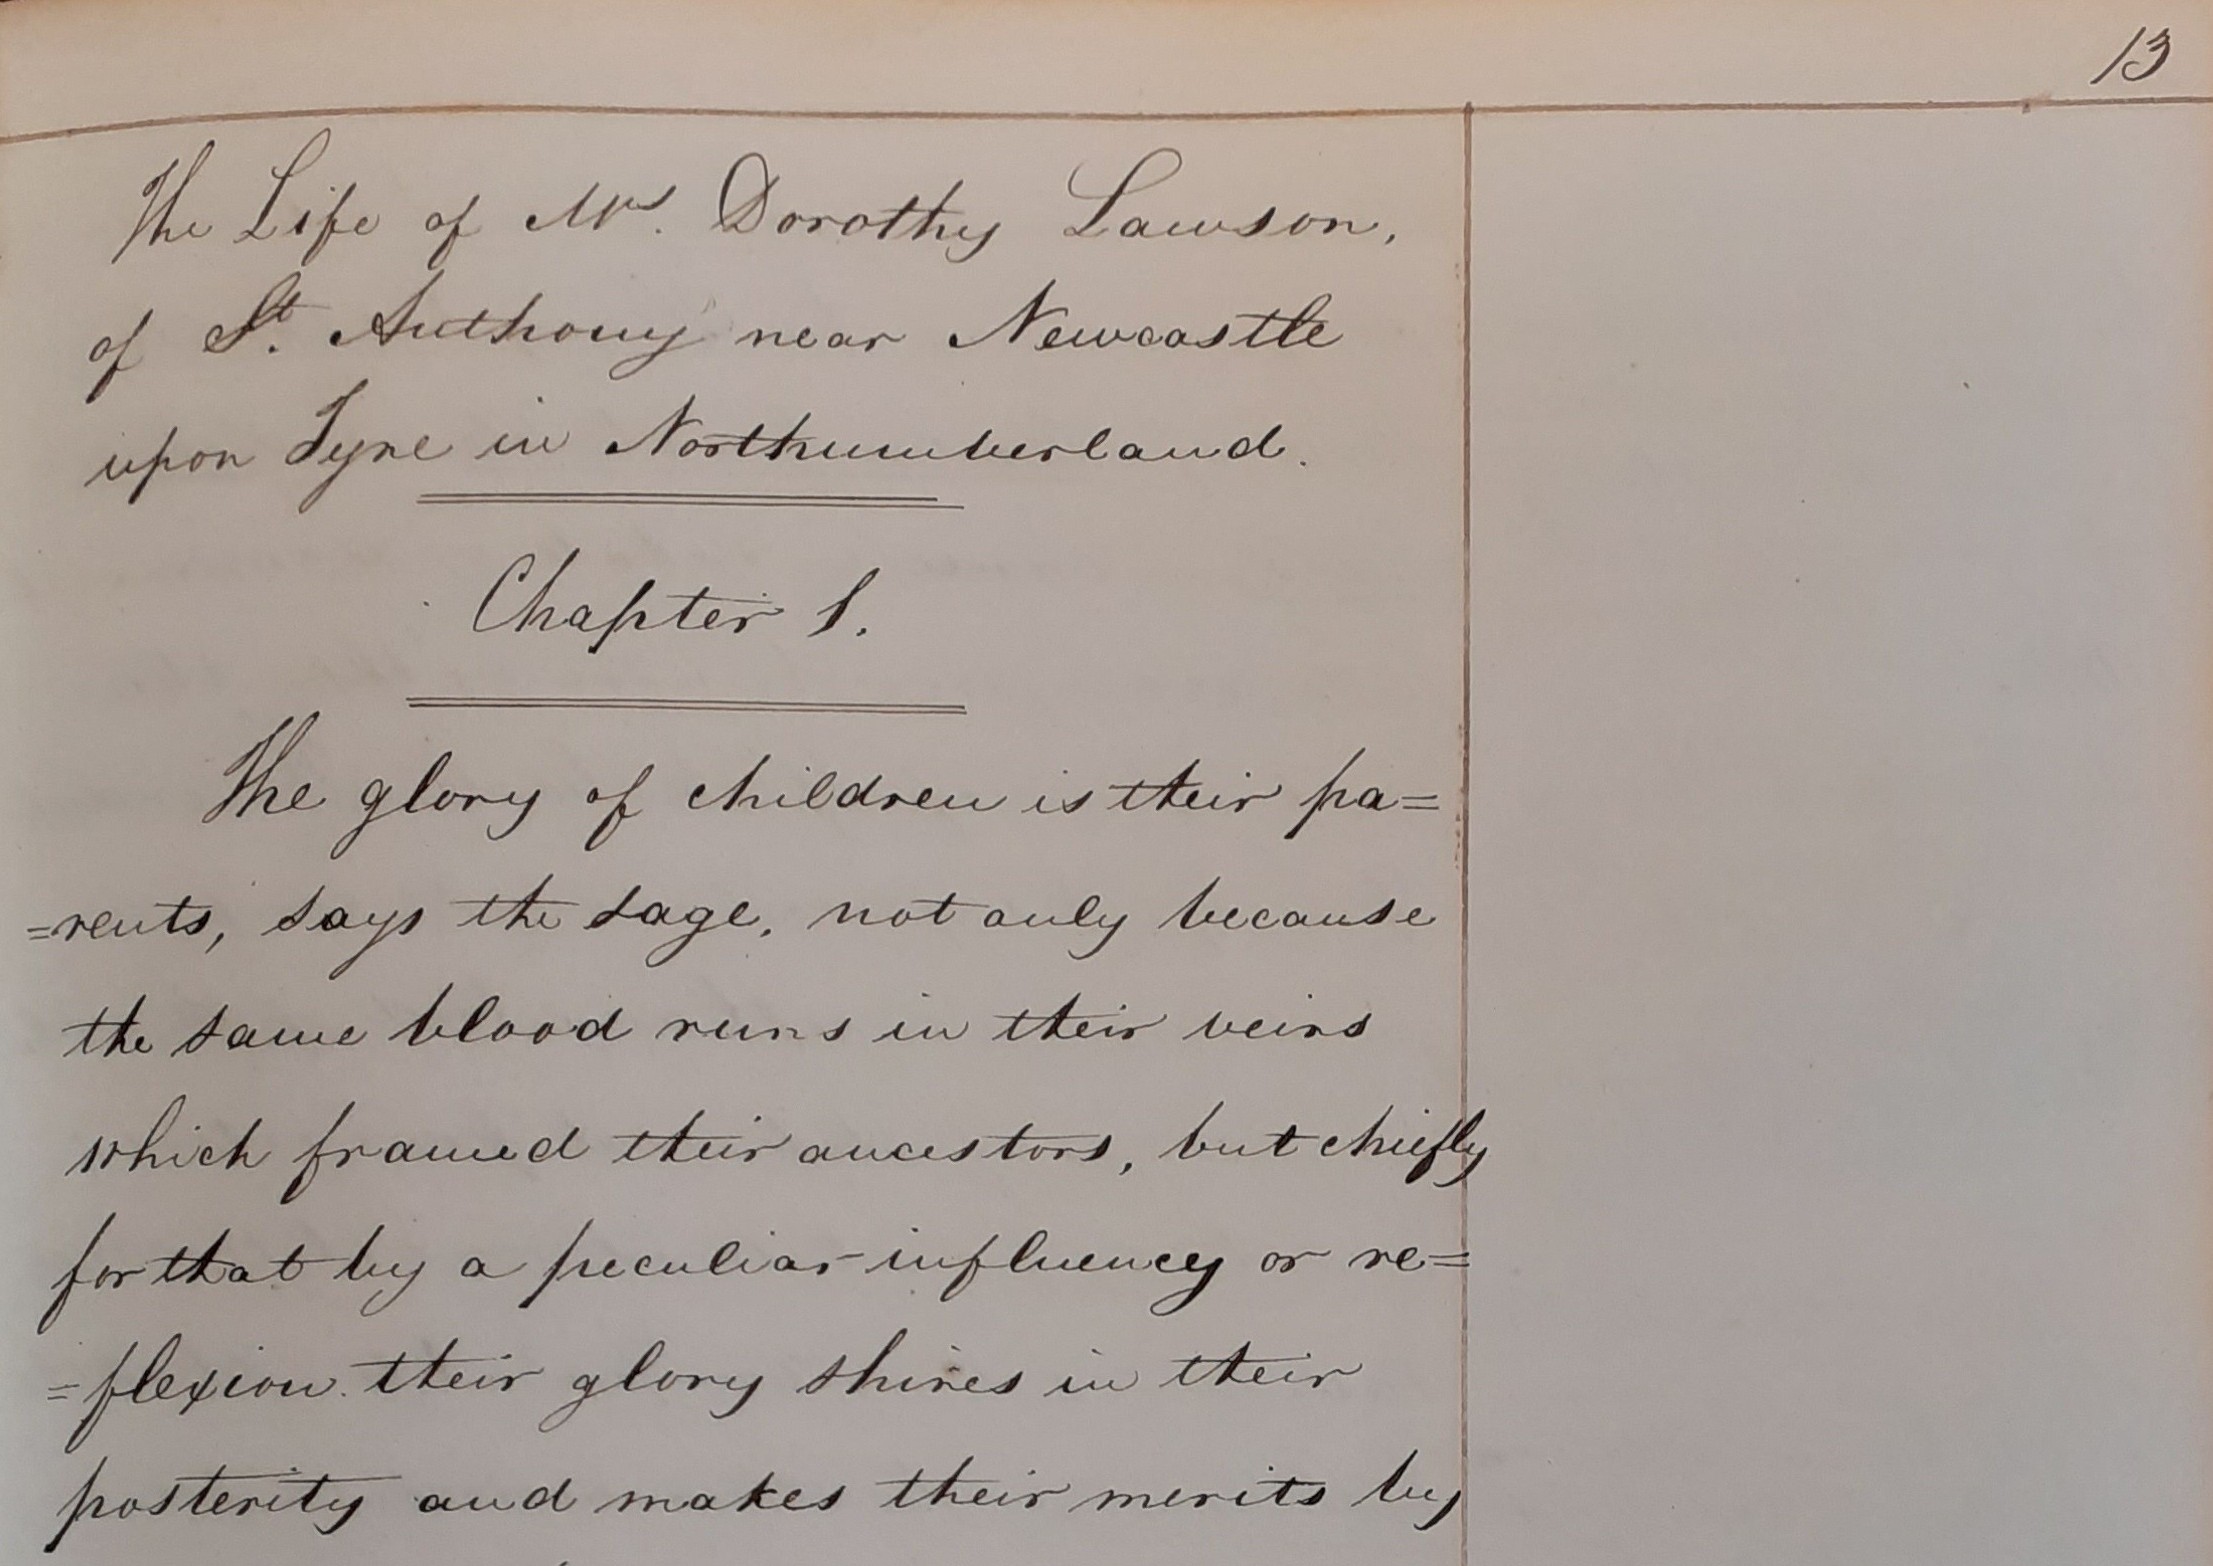 13
The Life of Mrs. Dorothy Lawson,
of St. Anthony near Newcastle
upon Tyne in Northumberland.
Chapter 1.
The glory of children is their pa=
=rents, says the sage, not only because
the same blood runs in their veins
which framed their ancestors, but chiefly
for that by a peculiar influency or re=
=flexion their glory shines in their
posterity and makes their merits by